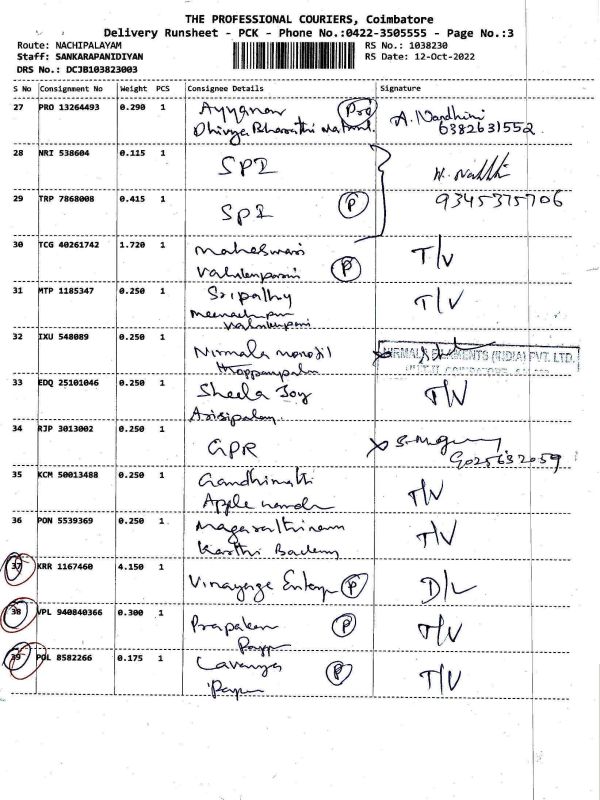 THE PROFESSIONAL COURIERS, Coimbatore
Delivery Runsheet - PCK - Phone No.:0422-3505555 - Page No.:3
Route: NACHIPALAYAM
RS No.: 1038230
Staff: SANKARAPANIDIYAN
RS Date: 12-Oct-2022
DRS No.: DCJB103823003
S No Consignment No Weight PCS Consignee Details Signature
27 PRO 13264493 0.290 1 Ayyanar Pro A. Nandhini
Dhivya Bharathi 6382631552
28 NRI 538604 0.115 1 SPI
29 TRP 7868008 0.415 1 SPI P 9345375706
30 TCG 40261742 1.720 1 Maheswari T/V
P
31 MTP 1185347 0.250 1 Sripathy T/V
32 IXU 548089 0.250 1 Nirmala NIRMAL FILAMENTS (INDIA) PVT. LTD.
33 EDQ 25101046 0.250 1 Sheela Joy T/V
Arisipalay
34 RJP 3013002 0.250 1 GPR
9025632059
35 KCM 50013488 0.250 1 Gandhimathi T/V
Apple
36 PON 5539369 0.250 1 T/V
Karthi
37 KRR 1167460 4.150 1 Vinayaga Enterp P D/L
38 VPL 940840366 0.300 1 Prapakar P T/V
39 POL 8582266 0.175 1 Lavanya P T/V